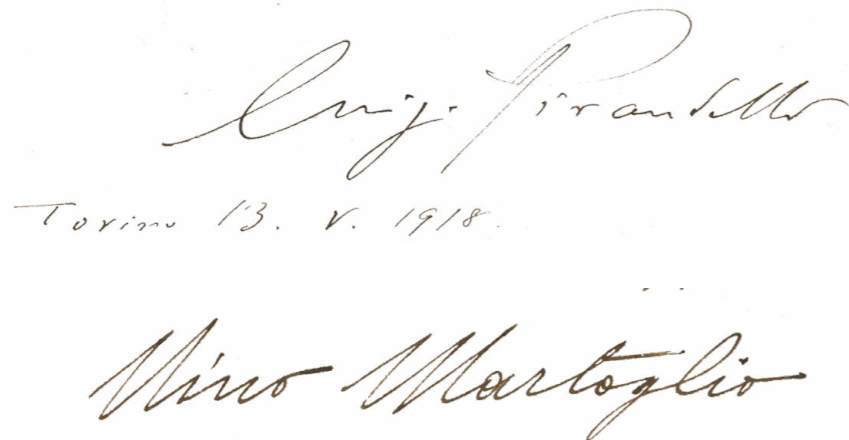 Luigi Pirandello
Torino 13. V. 1918.
Nino Martoglio